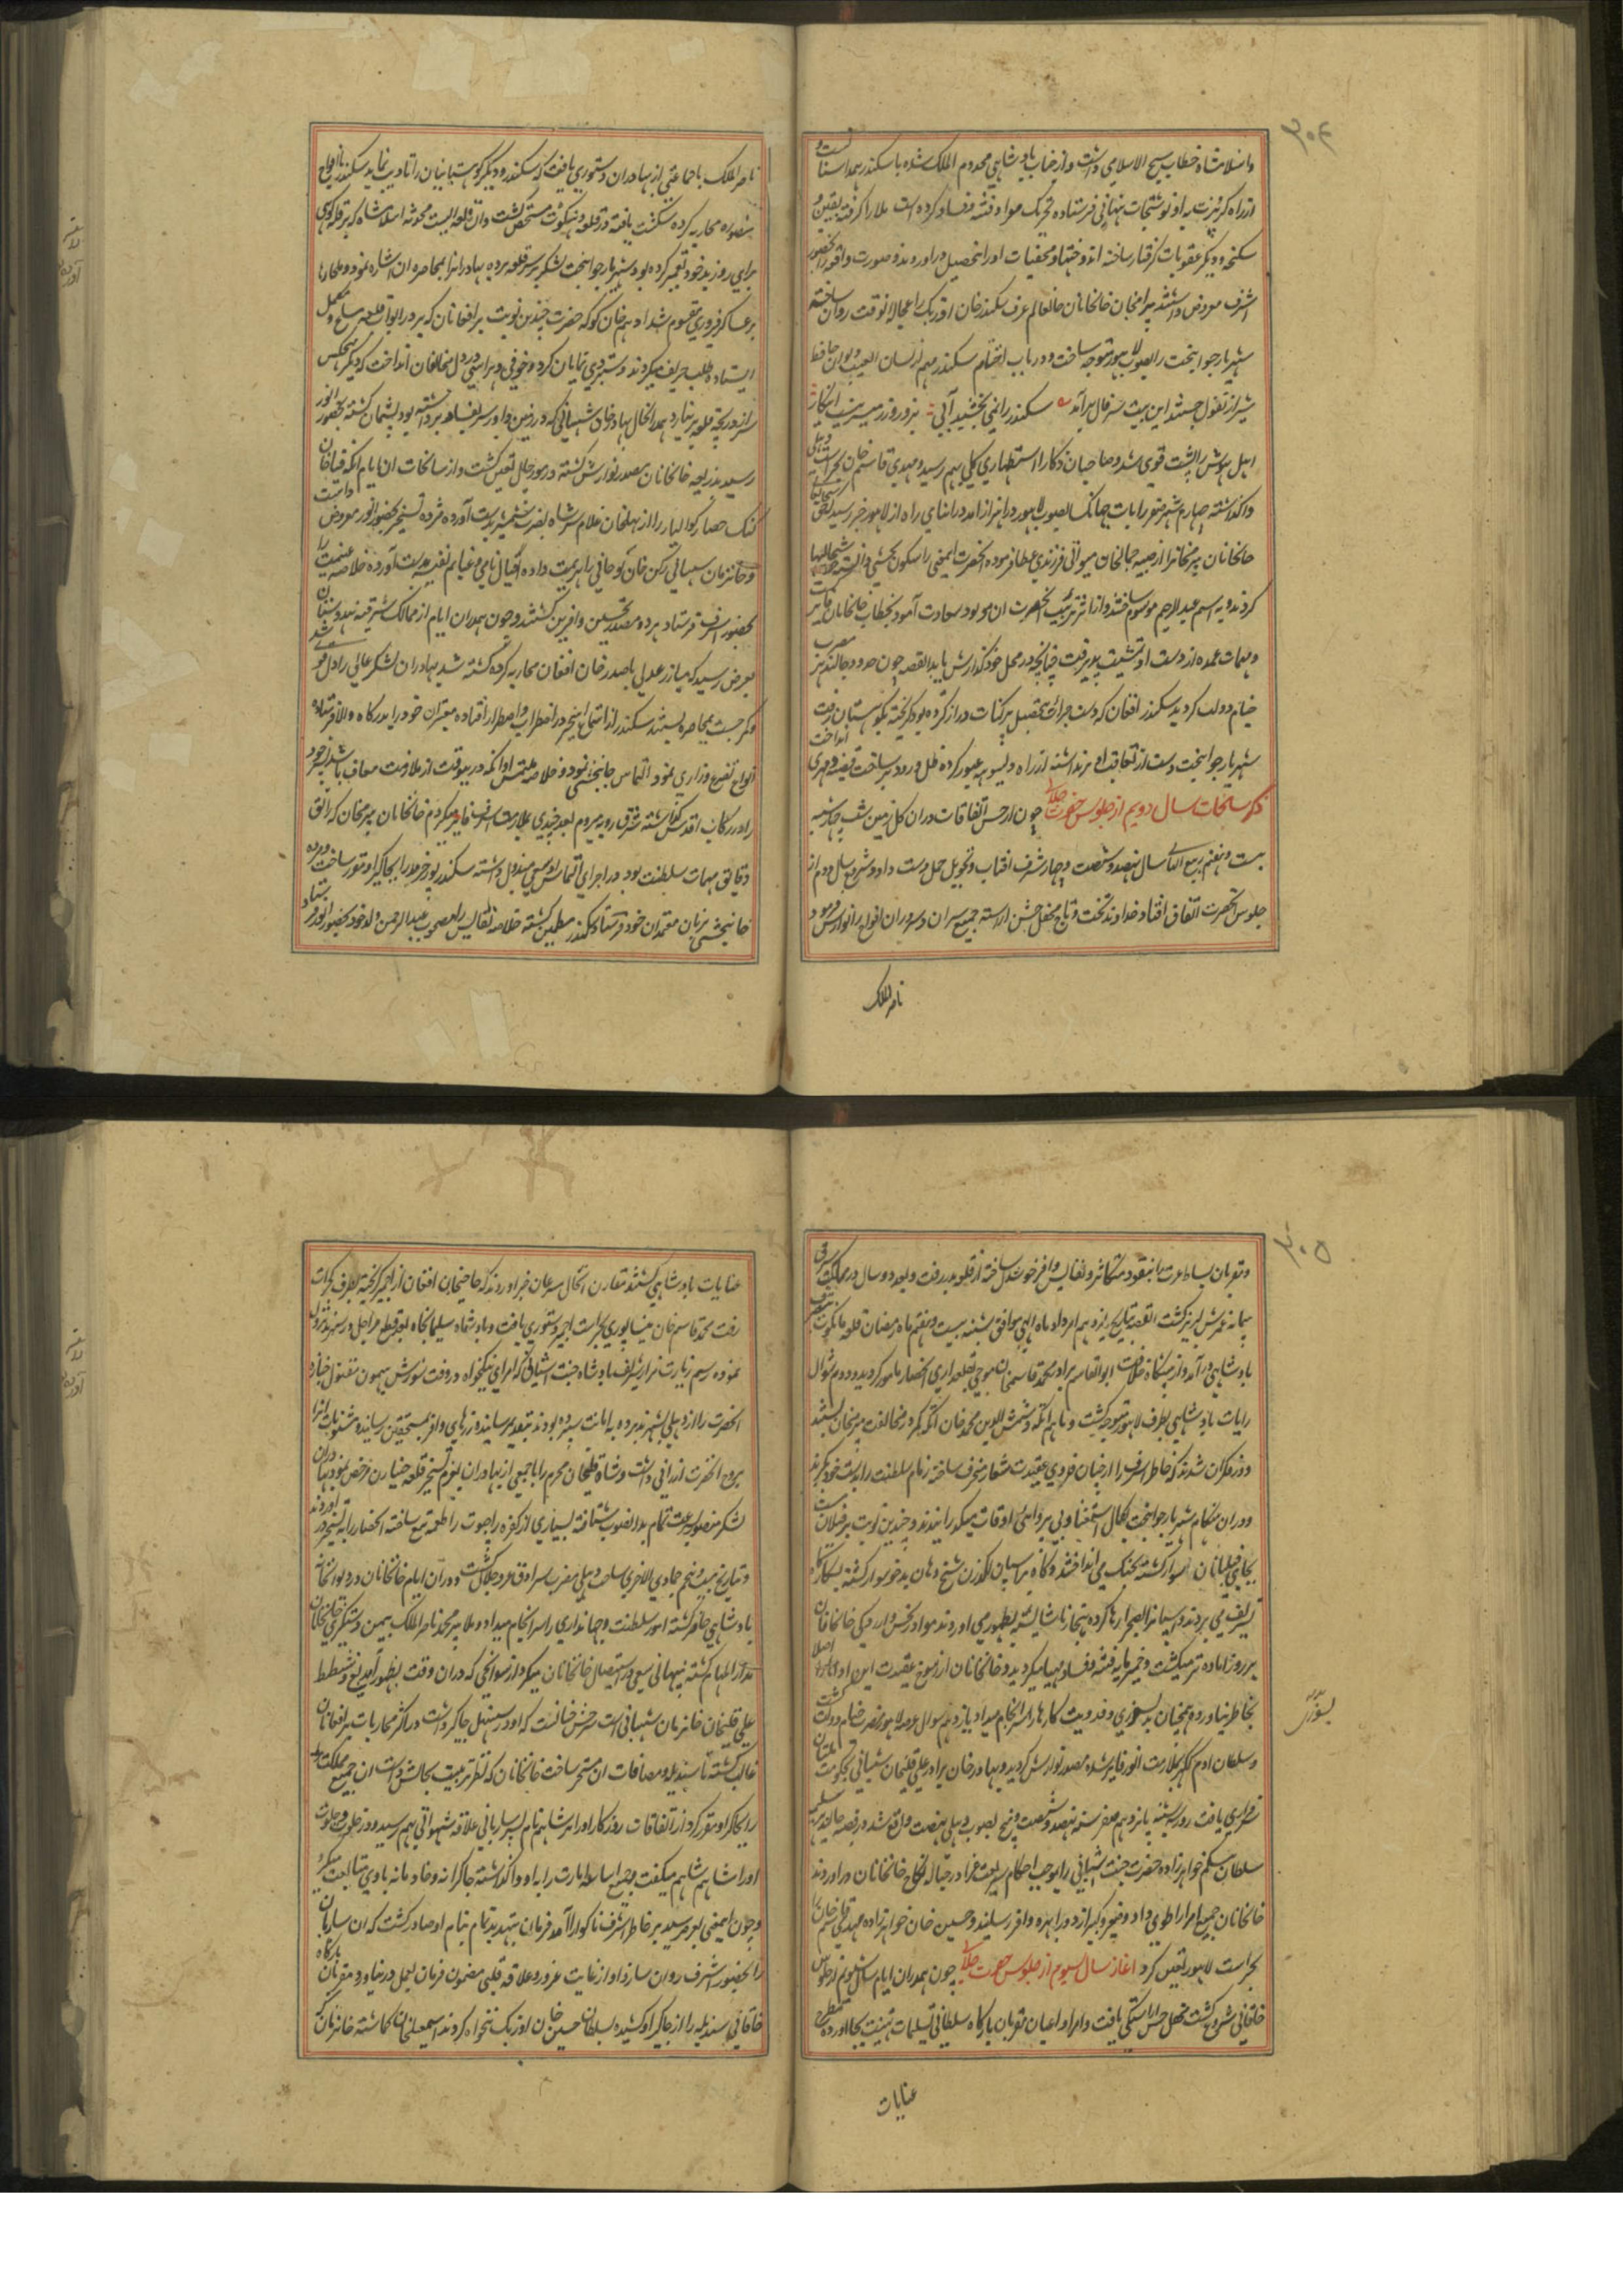 ۳۰۴
و از سلامشاه خطاب شیخ الاسلامی داشت و از جناب بادشاهی مخدوم الملک شده با سکندر همداستانست و
از راه کربزت به او نوشتجات نهانی فرستاده تحریک مواد فتنه و فساد کرده است ملا را گرفته بقین و
شکنجه و دیگر عقوبات گرفتار ساخته اند و ختها و مخفیات او را بتحصیل در اوردند و صورت واقعه را بحضور
اشرف معروض داشتند بیرامخان خانخانان خانعالم عرف سکندر خان اوزبک را عجالة الوقت روان ساخته
شهریار جوانبخت را بصوب لاهور متوجه ساخت و در باب اختتام سکندر مهم از لسان الغیب دیوان حافظ
شیراز تفول جستند این بیت سر فال برآمد سکندر را نمی بخشند آبی بزور و زر میسر نیست اینکار
اهل هوش را پشت قوی شد و صاحبان ذکا را استظهاری کلی بهم رسید و مهدی قاسم خان بحراست دهلی
واگذاشته چهارم شهر صفر رایات جهانگشا بصوب لاهور در اهتزاز امد در اثنای راه از لاهور خبر رسید که
خانخانان بیرمخانرا از صبیه جمالخان میواتی فرزندی عطا فرموده آنحضرت ایمعنی را شکون
کردند و به اسم عبدالرحیم موسوم ساختند و از اثر تربیت آنحضرت ان مولود سعادت آمود بخطاب خانخانان
و مهمات عمده از دست او تمشیت پذیرفت چنانچه در محل خود گذارش یابد القصه چون حدود جالندهر مضرب
خیام دولت گردید سکندر افغان که دست جرات بتحصیل پرگنات دراز کرده بود گریخته بکوهستان رفت
شهریار جوانبخت دست از تعاقب او برنداشته از راه دیسوهه عبور کرده ظل ورود بر ساحت قصبه دهمری انداخت
ذکر سانحات سال دویم از جلوس حضرت جلالی چون از حسن اتفاقات در ان گل زمین شب چهارشنبه
بیست و هفتم ربیع الثانی سال نهصد و شصت و چهار شرف افتاب و تحویل حمل دست داد و شروع سال دوم از
جلوس آنحضرت اتفاق افتاد خداوند تخت و تاج محفل جشن اراسته جمیع سران و سروران افواج را نوازش فرمود و
ناصر الملک
ناصر الملک با جماعتی از بهادران دستوری یافت که سکندر و دیگر کوهستانیان را تادیب نماید سکندر با افواج
منصوره محاربه کرده شکست یافته در قلعه مانکوت متحصن گشت و ان قلعه ایست محدثه اسلامشاه که بر قله کوهی
برای روز بد خود تعمیر کرده بود شهریار جوانبخت لشکر بر سر قلعه برده بهادرانرا بمحاصره ان اشاره نمود و ملچارها
بر عساکر فیروزی مقسوم شد ادهم خان کوکه حضرت چندین نوبت بر افغانان که بر در ابواب قلعه مسلح و مکمل
ایستاده طلب حریف میکردند دستبردی نمایان کرد و خوفی و هراسی در دل مخالفان انداخت که دیگر هیچکس
سر از دریچه قلعه بر نیارد همدر انحال بهادر خان شیبانی که در زمین داور سر بفساد برداشته بود پشیمان گشته بحضور انور
رسید بذریعه خانخانان مصدر نوازش گشته در مورچل تعین گشت و از سانحات ان ایام انکه قیا خان
گنگ حصار گوالیار را از بهلخان غلام سر شاه بضرب شمشیر بدست آورده مژده تسخیر بحضور انور معروض داشت
و خانزمان شیبانی رکن خان لوحانی را هزیمت داده افیال نامی و غنایم نفیسه بدست آورده خلاصه غنیمت را
بحضور اشرف فرستاد برده مصدر تحسین و افرین گشتند و چون همدران ایام از ممالک شرقیه هندوستان
بعرض رسید که مبارز عدلی با صدر خان افغان محاربه کرده کشته شد بهادران لشکر عالی را دل قوی شد
و کمر جست بمحاصره بستند سکندر از استماع اینخبر در اضطراب و اضطرار افتاده معتبران خود را بدرگاه والا فرستاده
انواع تضرع و زاری نمود التماس جانبخشی نمود و خلاصه ملتمس او انکه درینوقت از ملازمت معاف باشد پسر خود
را در رکاب اقدس گذاشته بشرق رویه میروم بعد چندی بملازمت اشرف فایز میگردم خانخانان بیرمخان که راتق
دقایق مهمات سلطنت بود در اجرای التماس او سعی مبذول داشته سکندر پور خرید را بجاگیر او مقرر ساخت و مژده
جانبخشی بزبان معتمدان خود فرستاد سکندر مطمئن گشته خلاصه نفایس را مصحوب عبدالرحمن ولد خود بحضور انور فرستاد
۳۰۵
و مقربان بساط عزت را بنقود متکاثر و نفایس وافر خوشدل ساخته از قلعه بدر رفت و بعد دو سال در ممالک شرقی
پیمانه عمرش لبریز گشت القصه بتاریخ یازدهم امرداد ماه الهی موافق شنبه بیست و هفتم ماه رمضان قلعه مانکوت بتصرف
بادشاهی در آمد و از پیشگاه خلافت ابوالقاسم برادر محمد قاسم خان موجی بقلعداری انحصار مامور گردید و دوم شوال
رایات بادشاهی بطرف لاهور متوجه گشت و ماهم اتکه و شمس الدین محمد خان اتکه کمر در مخالفت بیرمخان بستند
و در فکر ان شدند که خاطر اشرف را از چنان فدوی عقیدت شعار منحرف ساخته زمام سلطنت را بدست خود بگیرند
و دران هنگام شهریار جوانبخت بکمال استغنا و بی پرواهی اوقات میگذرانیدند و چندین نوبت بر فیلان مست
بجای فیلبانان سوار گشته بجنگ می انداختند و گاه بر اسپان شوخ و دهان بد خو سوار گشته بشکار
تشریف می بردند و اسپانرا بصحرا رها کرده بنجاز ناشایسته بظهور می اوردند مواد رنجش و ازردگی خانخانان
هر روز اماده تر میگشت و خمیر مایه فتنه و فساد مهیا میگردید و خانخانان از رسوخ عقیدت این اداها را اصلا
بخاطر نیاورده همچنان بدلسوزی و فدویت کارها را سرانجام میداد یازدهم شوال عرصه لاهور مضرب خیام دولت گشت
و سلطان ادم گکر بملازمت انور فایز شده مصدر نوازش گردید و بهادر خان برادر علی قلیخان شیبانی بحکومت ملتان
سرفرازی یافت روز شنبه پانزدهم صفر سنه نهصد و شصت و پنج بصوب دهلی نهضت واقع شد در قصبه جالندهر سلیمه
سلطان بیگم خواهرزاده حضرت جنت اشیانی را بموجب احکام شریعت غرا در حباله نکاح خانخانان در اوردند
خانخانان جمیع امرا را طوی داد و صغیر و کبیر از دور بهره وافر رسیدند و حسین خان خواهرزاده مهدی قاسم خان را
بحراست لاهور تعین کرد اغاز سال سیوم از جلوس حضرت جلالی چون همدران ایام سال سیوم از جلوس
خاقانی شروع گشت محفل جشن اراستگی یافت و امرا و اعیان مقربان بارگاه سلطانی تسلیمات تهنیت بجا اورده
عنایات
عنایات بادشاهی گشتند مقارن انحال مسرعان خبر اوردند که حاجیخان افغان از اجمیر گریخته بطرف گجرات
رفت محمد قاسم خان نیشاپوری بحراست اجمیر دستوری یافت و بادشاه سلیمانجاه بعد قطع مراحل در سهرند نزول
نموده رسم زیارت مزار شریف بادشاه جنت اشیانی که امرای نیکخواه در وقت شورش هیمون مقتول جنازه
انحضرت را از دهلی بسهرند برده به امانت سپرده بودند بتقدیم رسانیده زرهای وافر بمستحقین رسانیده مثوبات انرا
بروح انحضرت ارزانی داشت و شاه قلیخان محرم را با جمعی از بهادران بعزم تسخیر قلعه جیتارن مرخص نمود بهادران
لشکر منصور بسرعت تمام بدانصوب شتافته بسیاری از کفره راجپوت را طعمه تیغ ساخته انحصار را به تسخیر در اوردند
و بتاریخ بیست و پنجم جمادی الاخری ساحت دهلی مضرب سرادق عز و جلال گشت و در ان ایام خانخانان در دیوانخانه
بادشاهی حاضر گشته امور سلطنت و جهانداری را سرانجام میداد و ملا پیر محمد ناصر الملک بیمن دستگیری خانخانان
مدار المهام گشته بنهانی سعی در استیصال خانخانان میکرد از سوانحی که دران وقت بظهور آمد
علی قلیخان خانزمان شیبانی است شرحش چنانست که او در سنبهل جاگیر داشت در اکثر محاربات بر افغانان
غالب گشته تا سندیله و مضافات ان مسخر ساخت خانخانان که نظر تربیت بحالش داشت ان جمیع مملکت را
را بجاگیر او مقرر کرد از اتفاقات روزگار او را بر شاهم نام پسر ساربانی علاقه شهوانی بهم رسید و در خلوت و جلوت
او را شاهم شاهم میگفت و جمیع اسباب امارت را به او واگذاشته چاکرانه و خادمانه با وی متابعت میکرد
و چون ایمعنی بعرض رسید بر خاطر اشرف ناگوار آمد فرمان بتهدید تمام بنام او صادر گشت که ان ساربان
را بحضور اشرف روان سازد او از غایت غرور و علاقه قلبی مضمون فرمان بعمل در نیاورد مقربان بارگاه
خاقانی سندیله را از جاگیر او کشیده بسلطان حسین خان اوزبک تنخواه کردند اسمعیلخان گماشته خانزمان که